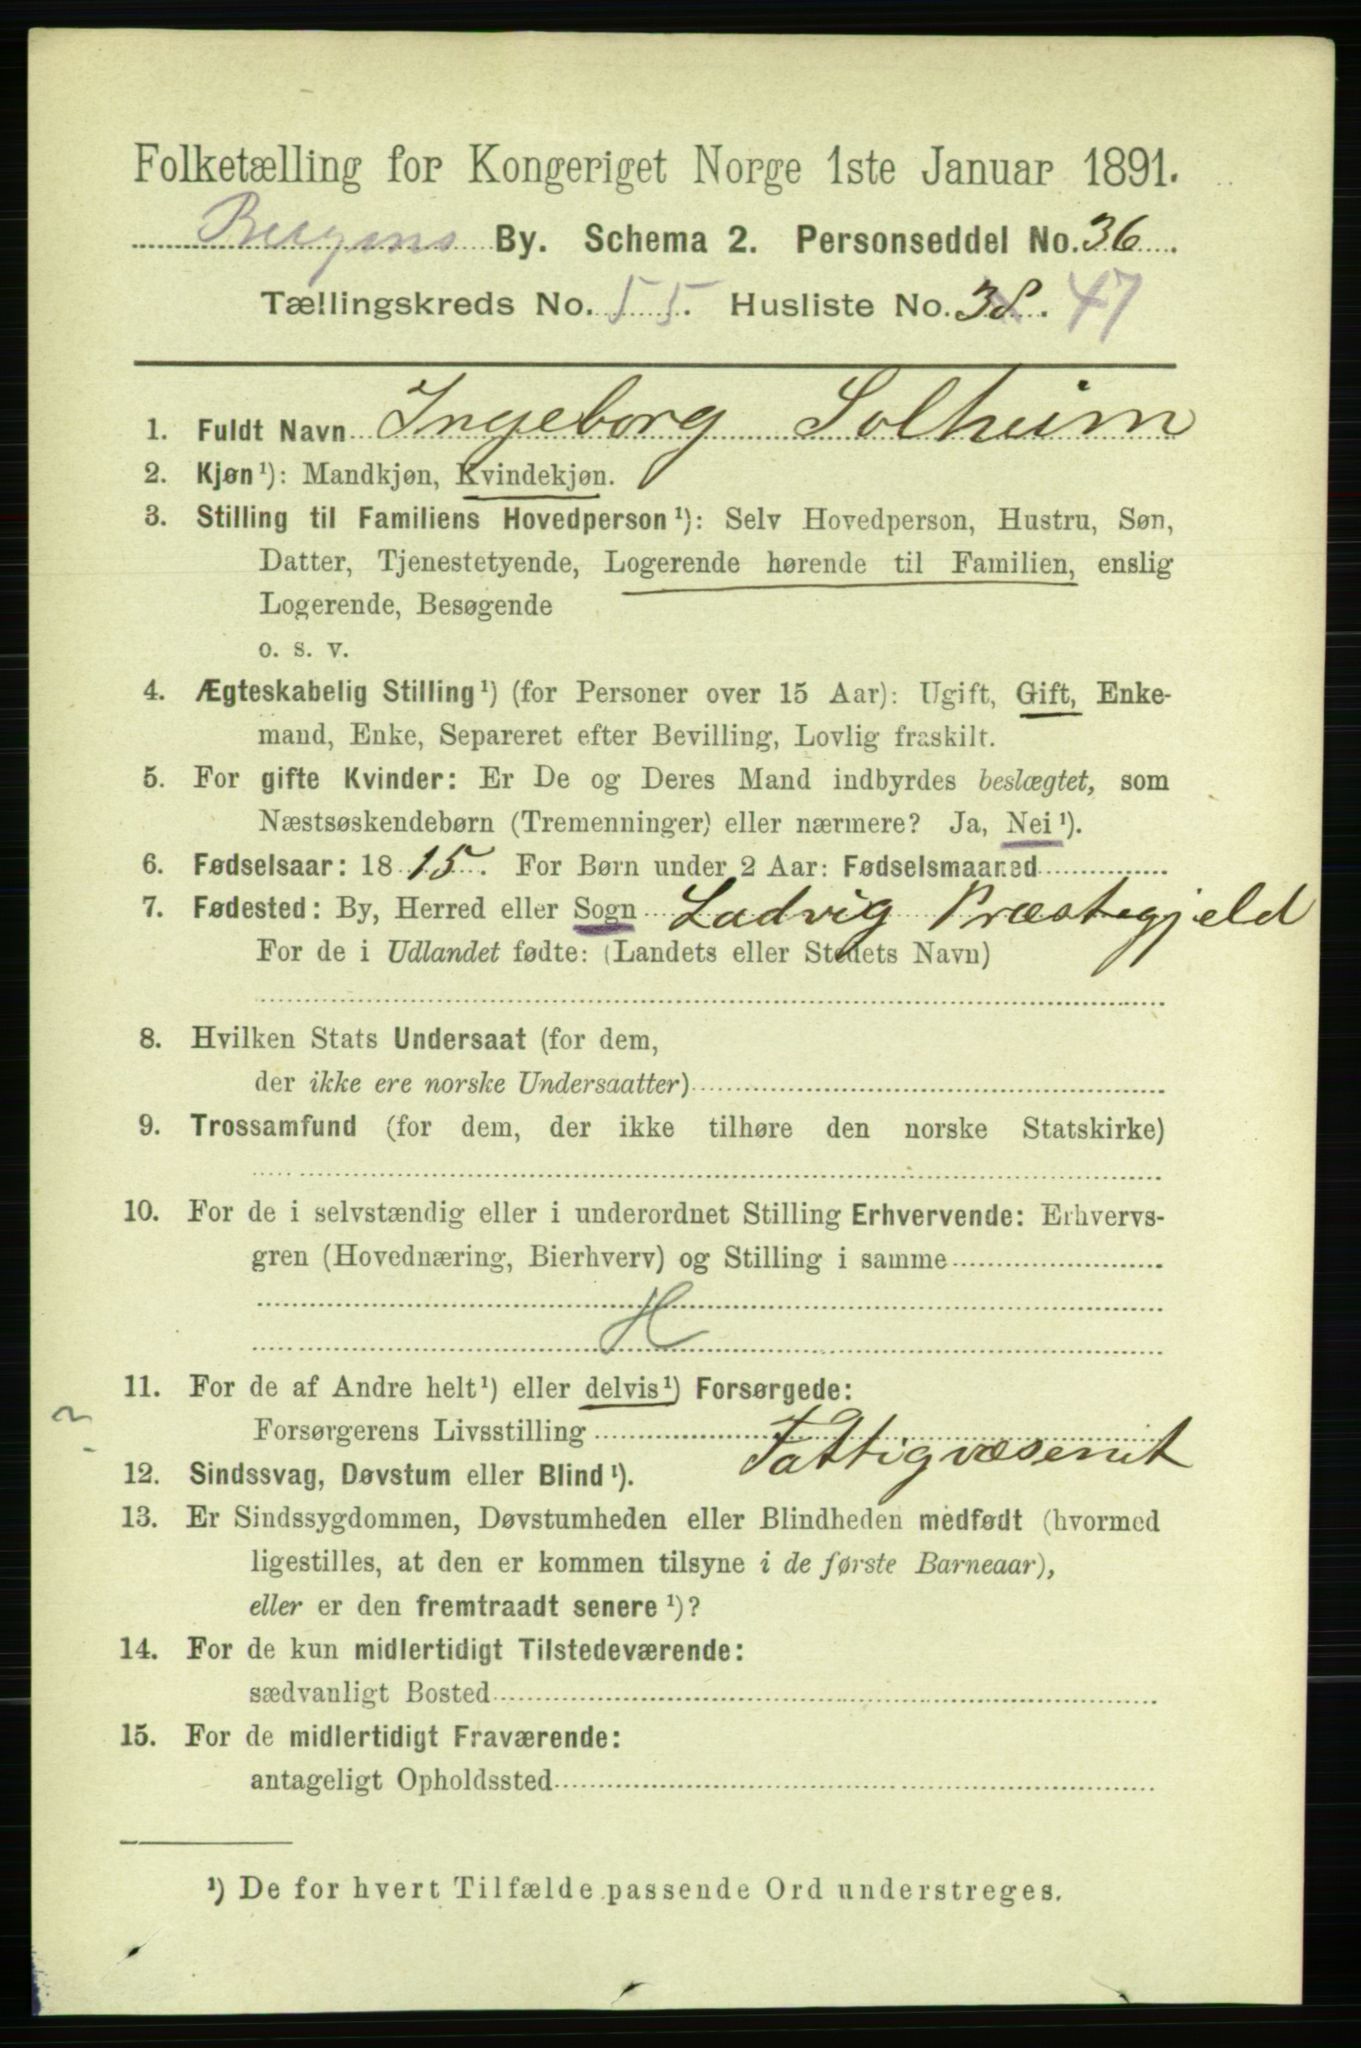 Folketælling for Kongeriget Norge 1ste Januar 1891.
Bergens By. Schema 2. Personseddel No. 36.
Tællingskreds No. 55. Husliste No. 38. 47
1. Fuldt Navn Ingeborg Solheim
2. Kjøn¹): Mandkjøn, Kvindekjøn.
3. Stilling til Familiens Hovedperson¹): Selv Hovedperson, Hustru, Søn,
Datter, Tjenestetyende, Logerende hørende til Familien, enslig
Logerende, Besøgende
o. s. v.
4. Ægteskabelig Stilling¹) (for Personer over 15 Aar): Ugift, Gift, Enke-
mand, Enke, Separeret efter Bevilling, Lovlig fraskilt.
5. For gifte Kvinder: Er De og Deres Mand indbyrdes beslægtet, som
Næstsøskendebørn (Tremenninger) eller nærmere? Ja, Nei¹).
6. Fødselsaar: 1815. For Børn under 2 Aar: Fødselsmaaned
7. Fødested: By, Herred eller Sogn Ladvig Præstegjeld
For de i Udlandet fødte: (Landets eller Stedets Navn)
8. Hvilken Stats Undersaat (for dem,
der ikke ere norske Undersaatter)
9. Trossamfund (for dem, der ikke tilhøre den norske Statskirke)
10. For de i selvstændig eller i underordnet Stilling Erhvervende: Erhvervs-
gren (Hovednæring, Bierhverv) og Stilling i samme
H
11. For de af Andre helt¹) eller delvis¹) Forsørgede:
Forsørgerens Livsstilling Fattigvæsenet
12. Sindssvag, Døvstum eller Blind¹).
13. Er Sindssygdommen, Døvstumheden eller Blindheden medfødt (hvormed
ligestilles, at den er kommen tilsyne i de første Barneaar),
eller er den fremtraadt senere¹)?
14. For de kun midlertidigt Tilstedeværende:
sædvanligt Bosted
15. For de midlertidigt Fraværende:
antageligt Opholdssted
¹) De for hvert Tilfælde passende Ord understreges.